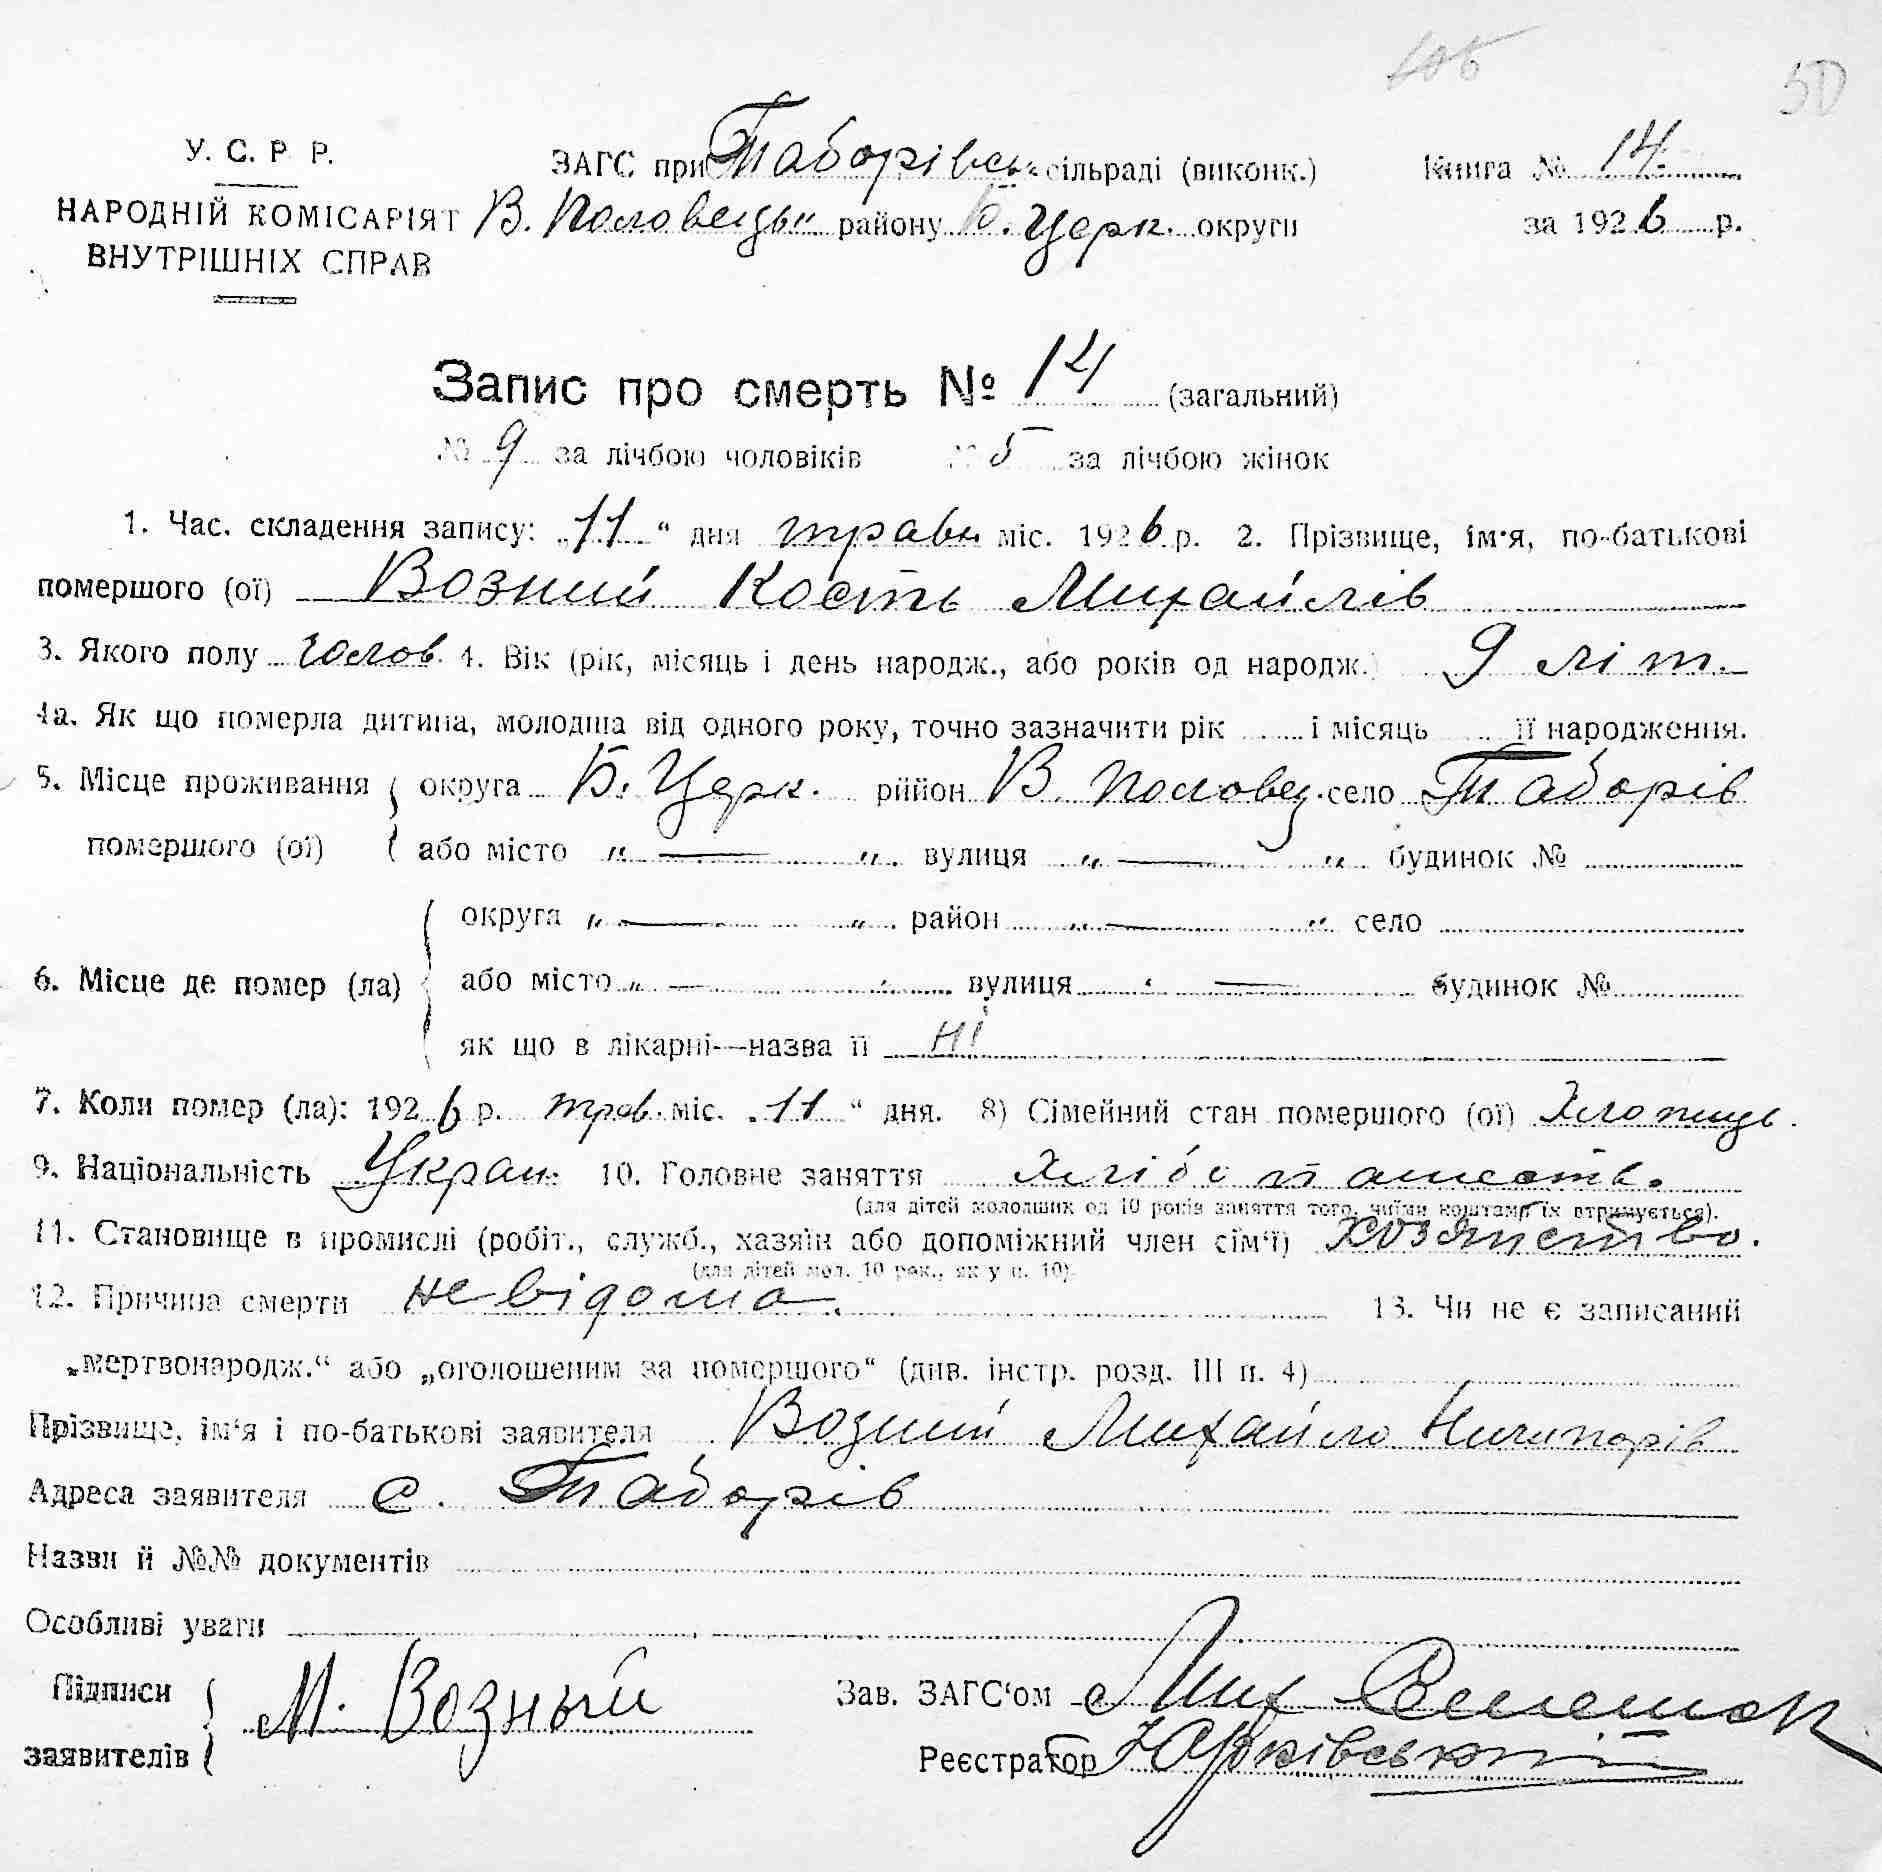 50
У. С. Р. Р.
НАРОДНІЙ КОМІСАРІЯТ
ВНУТРІШНІХ СПРАВ
ЗАГС при Таборівськ сільраді (виконк.)
В. Половецьк району Б. Церк. округи
Книга № 14.
за 1926 р.
Запис про смерть № 14 (загальний)
№ 9 за лічбою чоловіків № 5 за лічбою жінок
1. Час. складення запису: „11“ дня травн міс. 1926 р. 2. Прізвище, ім'я, по-батькові
помершого (ої) Возний Кость Михайлів
3. Якого полу чолов. 4. Вік (рік, місяць і день народж., або років од народж.) 9 літ.
4а. Як що померла дитина, молодша від одного року, точно зазначити рік ...... і місяць ...... її народження.
5. Місце проживання помершого (ої) { округа Б. Церк. район В. Половец. село Таборів
або місто „ — „ вулиця „ — „ будинок №
6. Місце де помер (ла) { округа „ — „ район „ — „ село
або місто „ — „ вулиця „ — будинок №
як що в лікарні—назва її ні
7. Коли помер (ла): 1926 р. трав. міс. „11“ дня. 8) Сімейний стан помершого (ої) Хлопець.
9. Національність Украп. 10. Головне заняття Хлібопашеств.
(для дітей молодших од 10 років заняття того, чиїми коштами їх втримується).
11. Становище в промислі (робіт., служб., хазяїн або допоміжний член сім'ї) хозяйство.
(для дітей мол. 10 рок., як у п. 10).
12. Причина смерти не відома. 13. Чи не є записаний
„мертвонародж.“ або „оголошеним за помершого“ (див. інстр. розд. III п. 4)
Прізвище, ім'я і по-батькові заявителя Возний Михайло Ничипорів
Адреса заявителя с. Таборів
Назви й №№ документів
Особливі уваги
Підписи заявителів { М. Возный
Зав. ЗАГС'ом Мих
Реєстратор